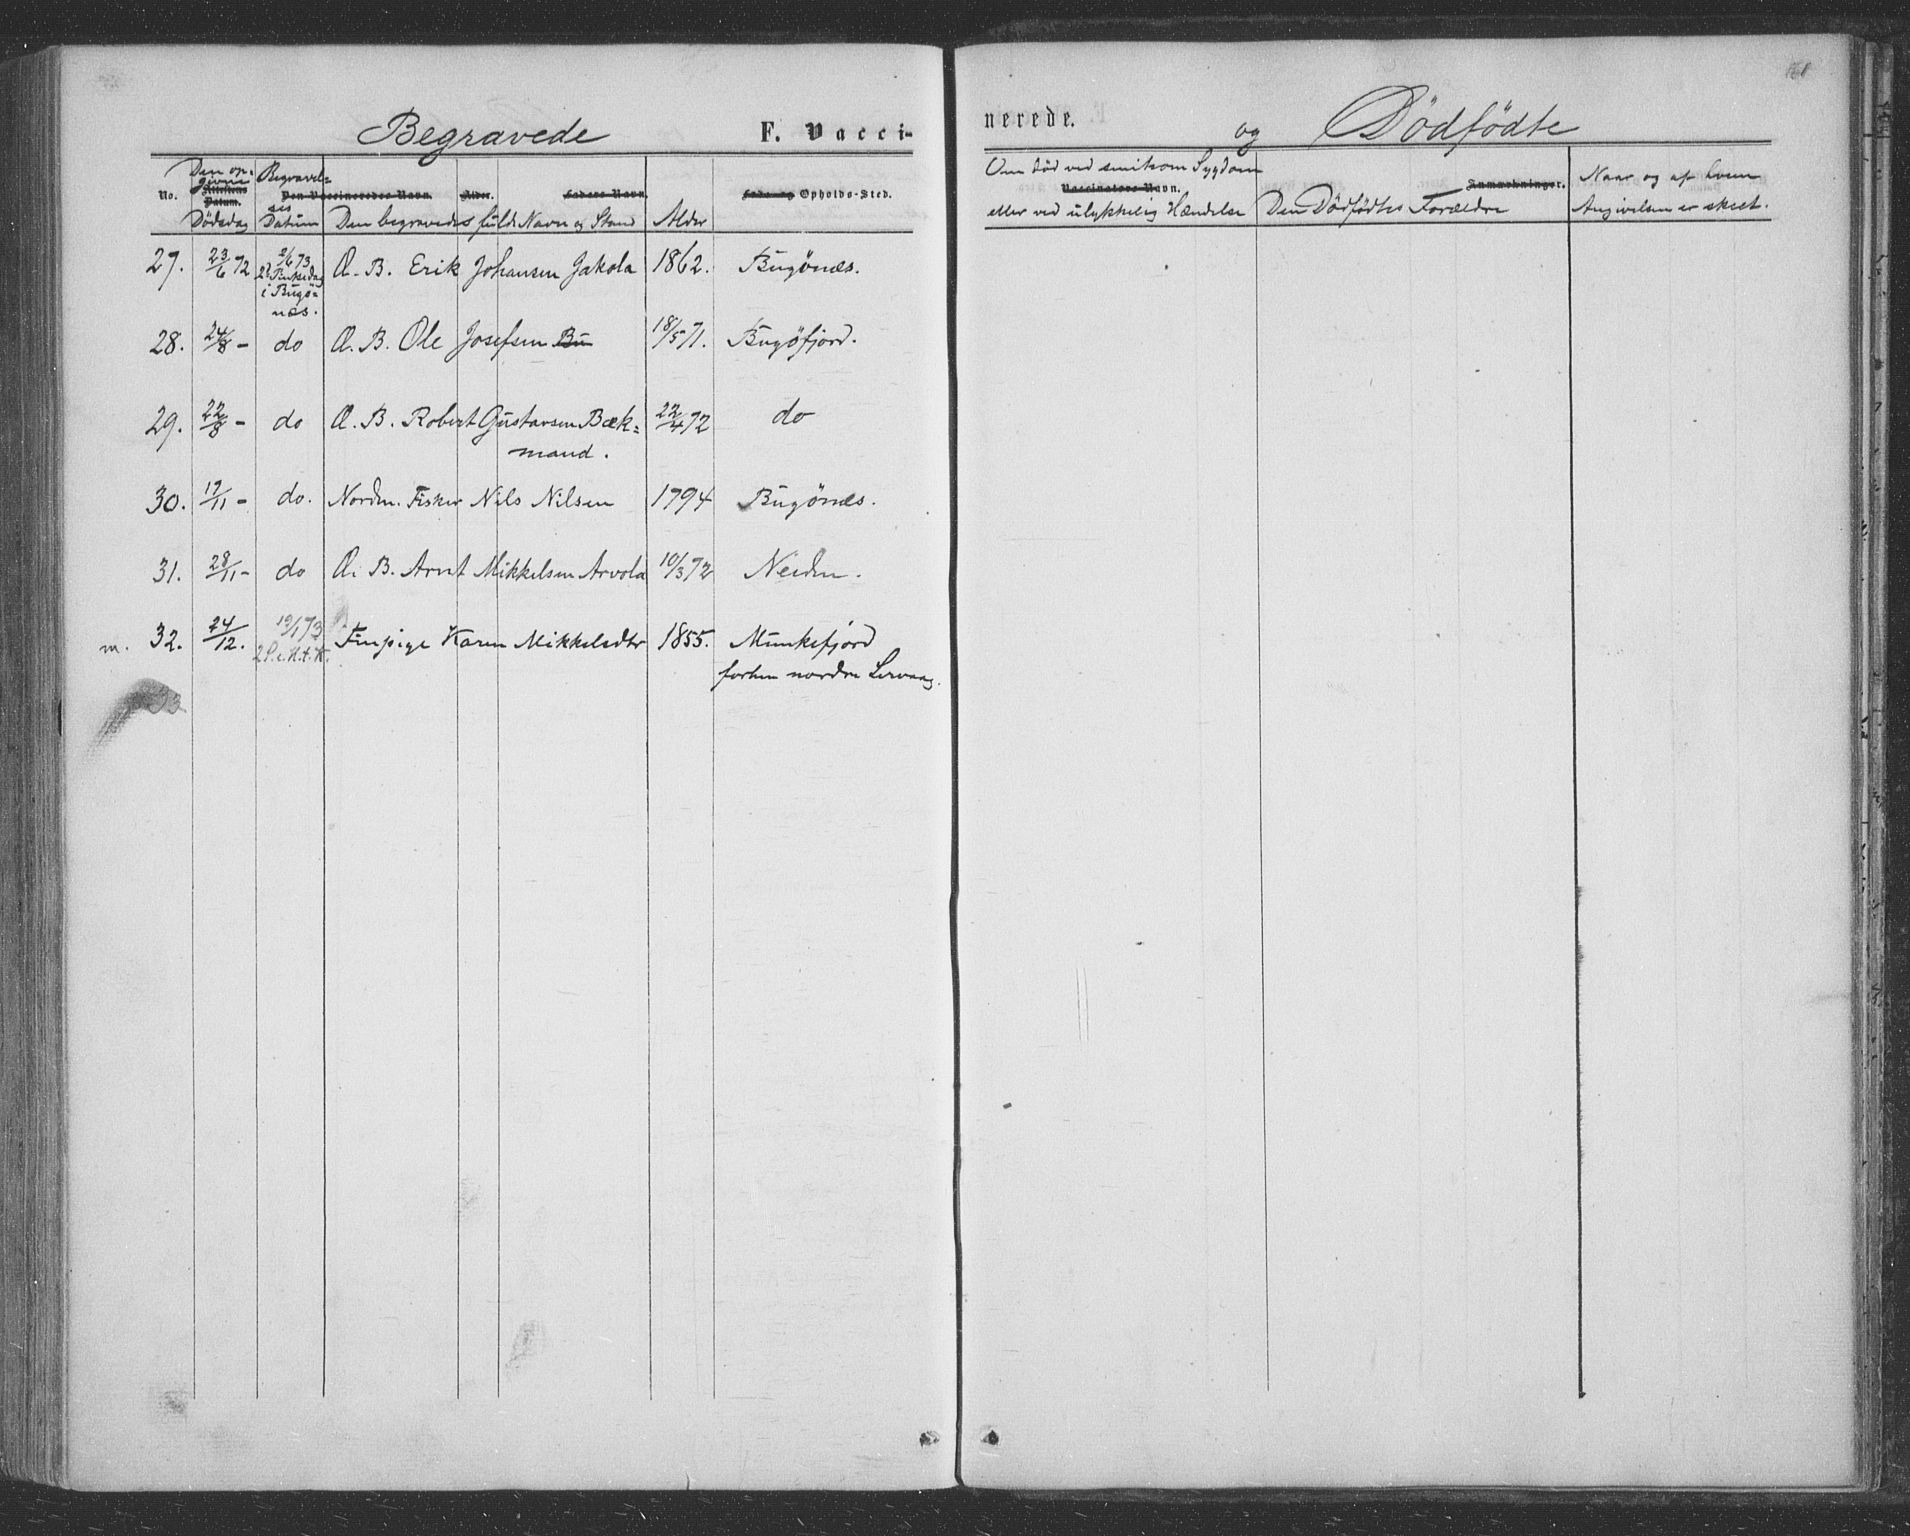 Begravede F. Vacci-
nerede. og Dødfødte
168
No. Den opgivne Dødsdag
Attestens Datum.
Begravelses Datum
Den Vaccineredes Navn. Alder. Faders Navn.
Den begravedes fulde Navn og Stand Alder
Føde- og Opholds-Sted.
Om død ved smitsom Sygdom
Vaccinators Navn.
eller ved ulykkelig Hændelse
Anmærkninger.
Den Dødfødtes Forældre
Naar og af hvem
Angivelsen er skeet.
27. 23/6 72 2/6 73 Æ. B. Erik Johansen Jakola 1862. Bugönæs.
2d Pinkedag
i Bugö-
næs.
28. 24/8 - do Æ. B. Ole Josefsen Bu 18/5 71. Bugöfjord.
29. 22/8 - do Æ. B. Robert Gustavsen Bæk= 22/4 72 do
mand.
30. 19/11 - do. Nordm. Fisker Nils Nilsen 1794 Bugönæs.
31. 28/11 - do Æ. B. Arnt Mikkelsen Arvola 10/3 72 Neiden.
m. 32. 24/12. 19/1 73 Finpige Karen Mikkelsdtr 1855. Munkefjord
2 S. e. H. t. K. forhen nordre Lervaag.